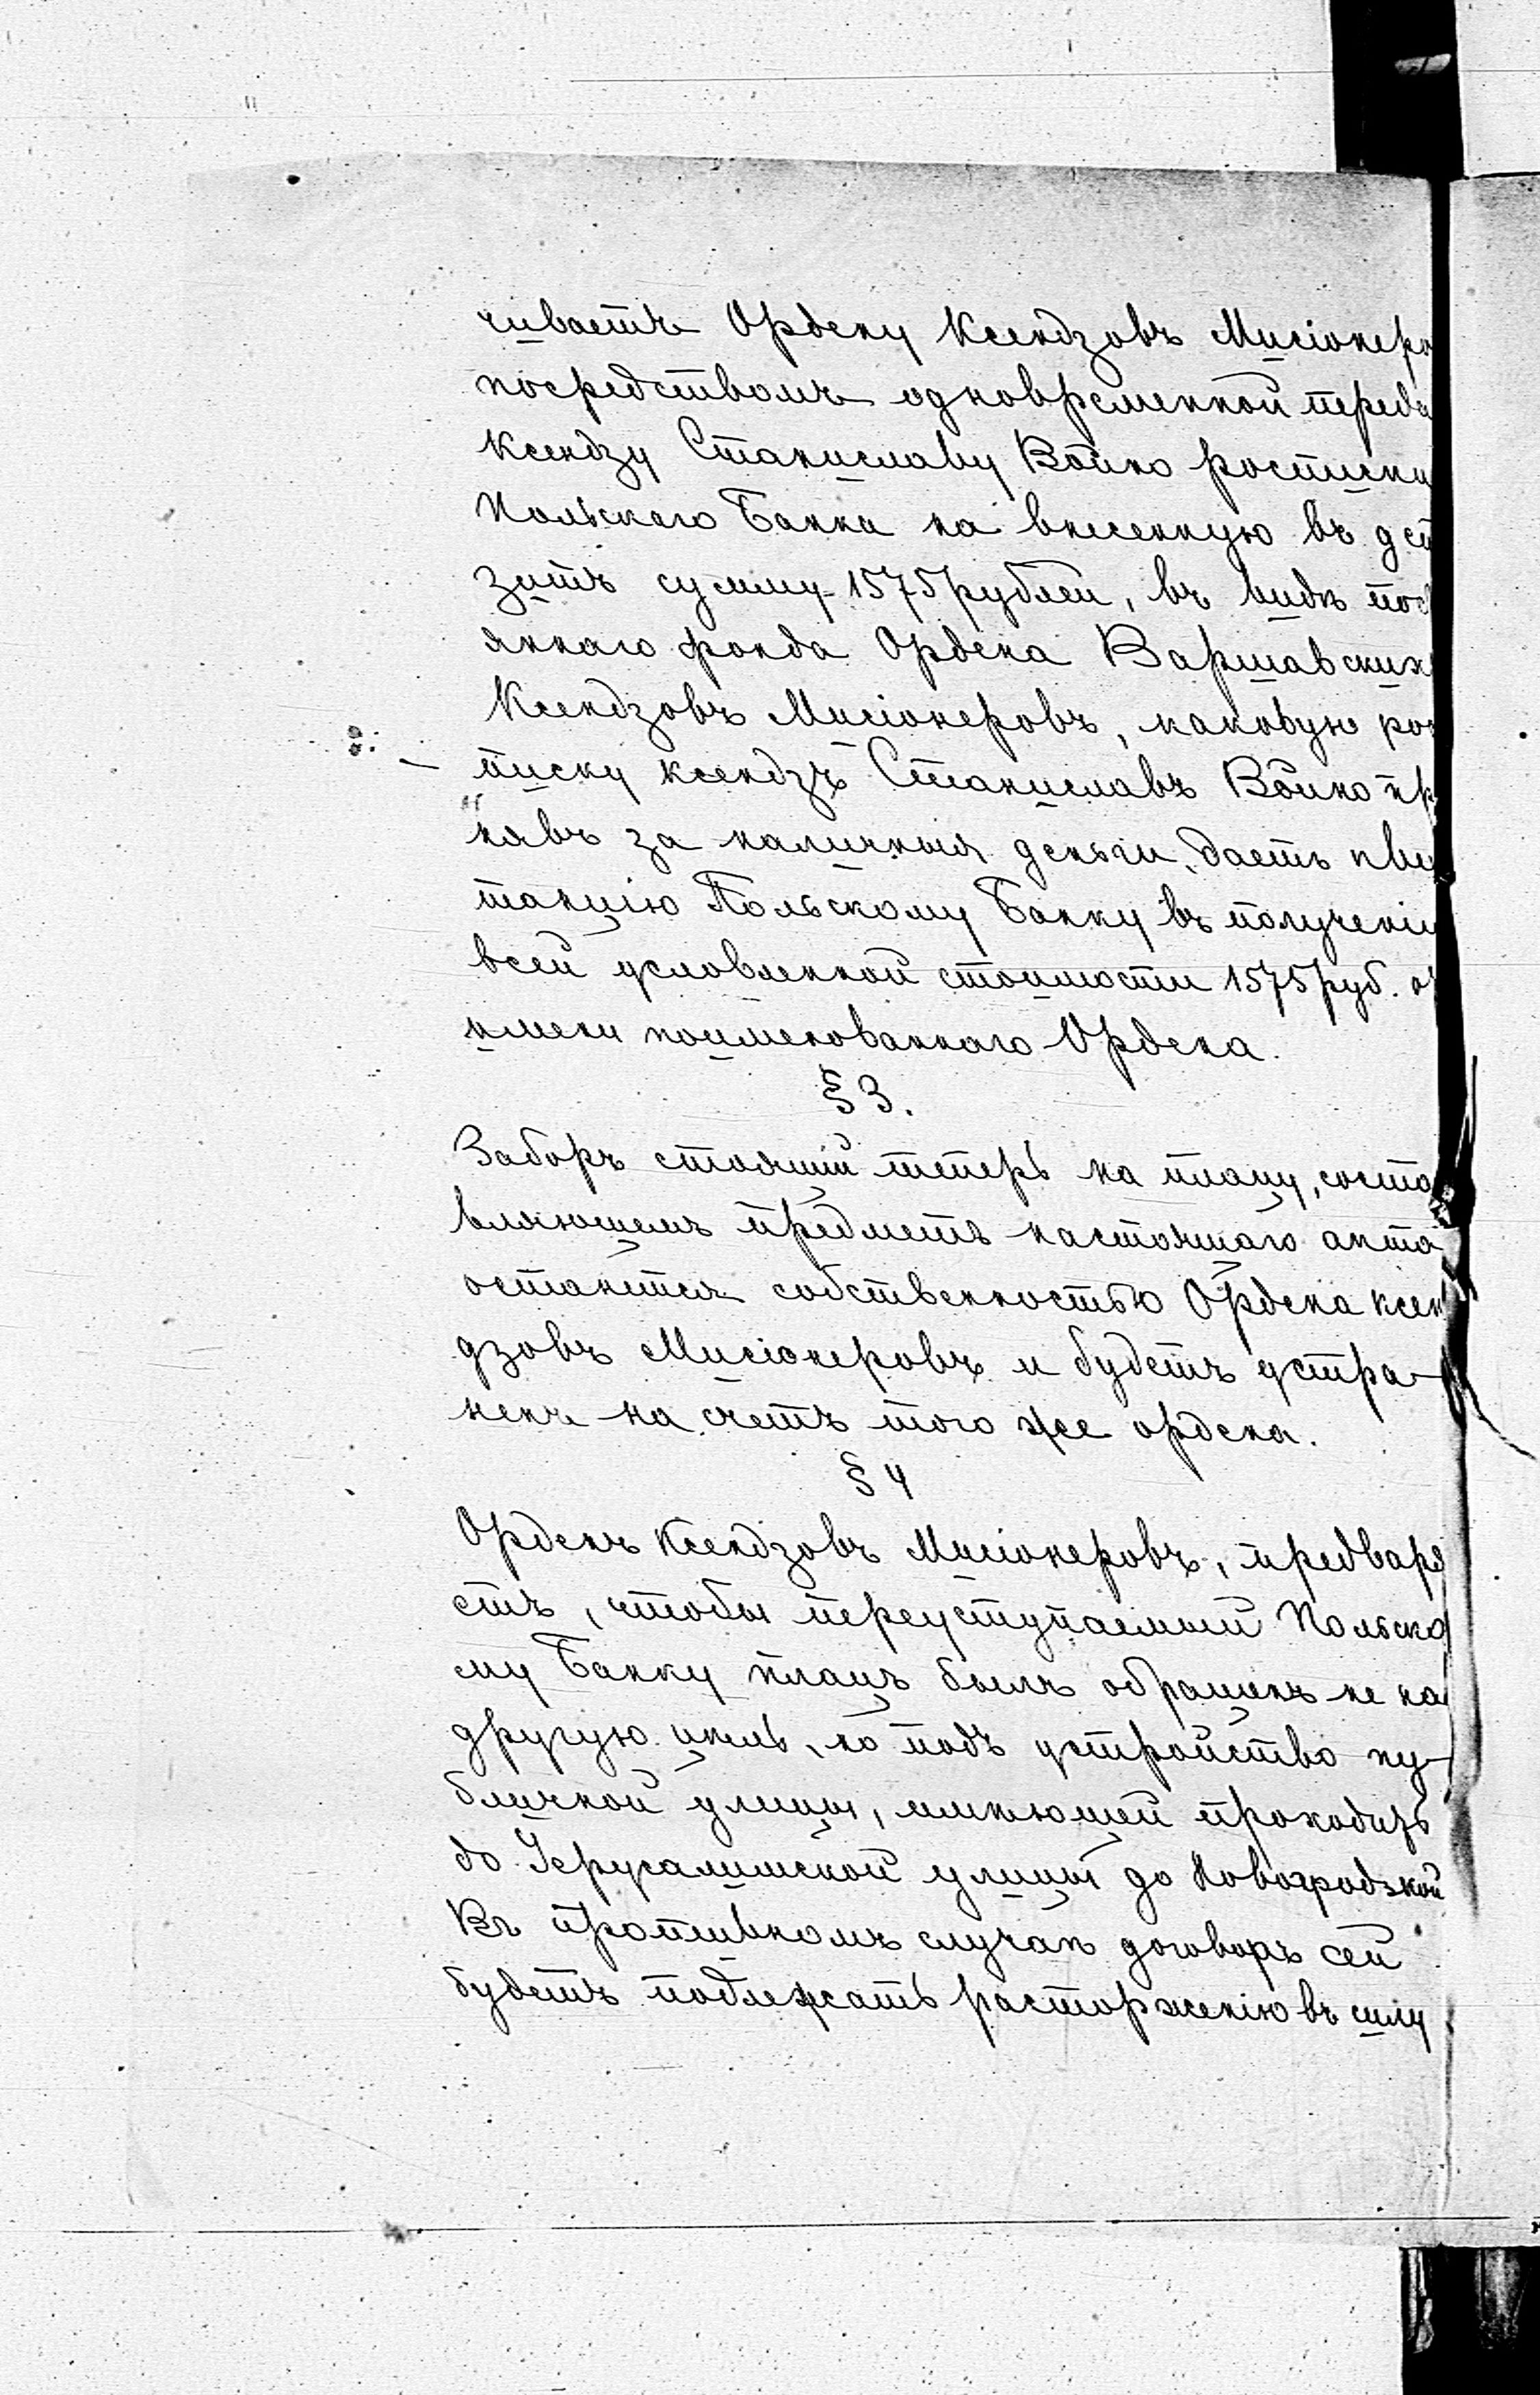 чиваетъ Ордену Ксендзовъ Мисіонеро
посредствомъ одновременной переда
Ксендзу Станиславу Войно росписки
Польскаго Банка на внесенную въ деп
зитъ сумму 1575 рублей, въ видѣ пос
яннаго фонда Ордена Варшавскихъ
Ксендзовъ Мисіонеровъ, каковую рос
писку ксендзъ Станиславъ Войно пр
нявъ за наличныя деньги, даетъ кви
танцію Польскому Банку въ полученіи
всей условленной стоимости 1575 руб. о
имени поименованнаго Ордена.
§ 3.
Заборъ стоящій теперь на плацу, соста
вляющемъ предметъ настоящаго акта
останется собственностью Ордена ксен
дзовъ Мисіонеровъ и будетъ устра-
ненъ на счетъ того же ордена.
§ 4
Орденъ Ксендзовъ Мисіонеровъ, предваря
етъ, чтобы переуступаемый Польско
му Банку плацъ былъ обращенъ не на
другую цѣль, но подъ устройство пу-
бличной улицы, имѣющей проходить
до Іерусалимской улицы до Новогродзкой
Въ противномъ случаѣ договоръ сей
будетъ подлежать расторженію въ силу